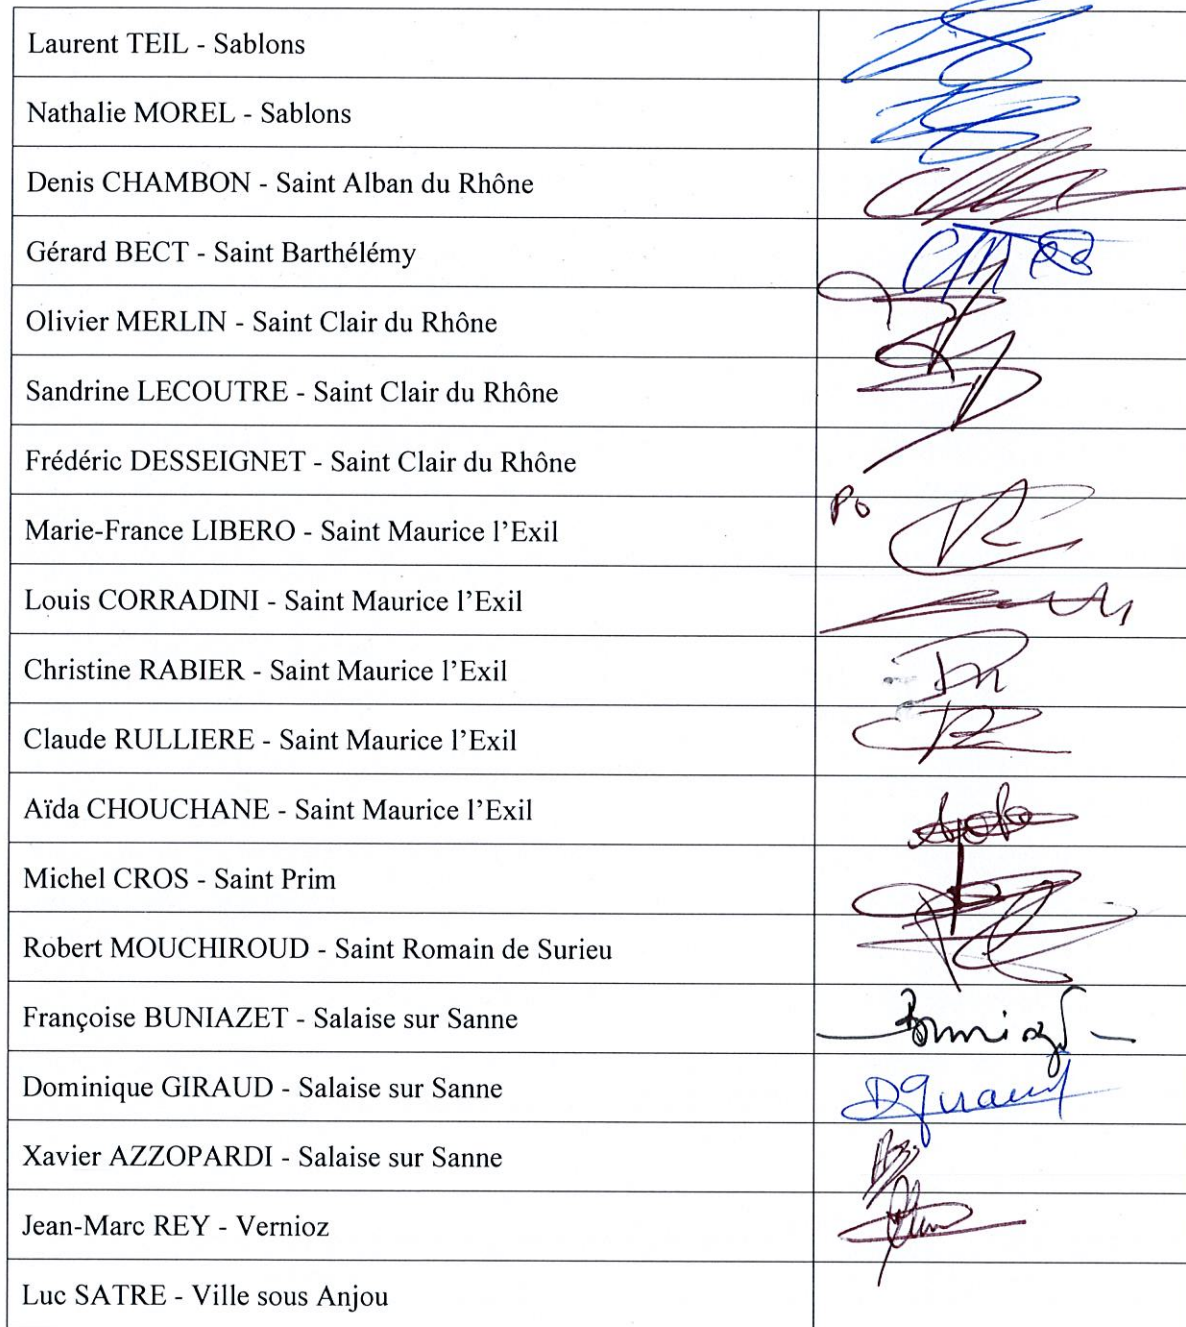 Laurent TEIL - Sablons
Nathalie MOREL - Sablons
Denis CHAMBON - Saint Alban du Rhône
Gérard BECT - Saint Barthélémy
Olivier MERLIN - Saint Clair du Rhône
Sandrine LECOUTRE - Saint Clair du Rhône
Frédéric DESSEIGNET - Saint Clair du Rhône
Marie-France LIBERO - Saint Maurice l'Exil
Po
Louis CORRADINI - Saint Maurice l'Exil
Christine RABIER - Saint Maurice l'Exil
Claude RULLIERE - Saint Maurice l'Exil
Aïda CHOUCHANE - Saint Maurice l'Exil
Michel CROS - Saint Prim
Robert MOUCHIROUD - Saint Romain de Surieu
Françoise BUNIAZET - Salaise sur Sanne
Dominique GIRAUD - Salaise sur Sanne
DGiraud
Xavier AZZOPARDI - Salaise sur Sanne
Jean-Marc REY - Vernioz
Luc SATRE - Ville sous Anjou